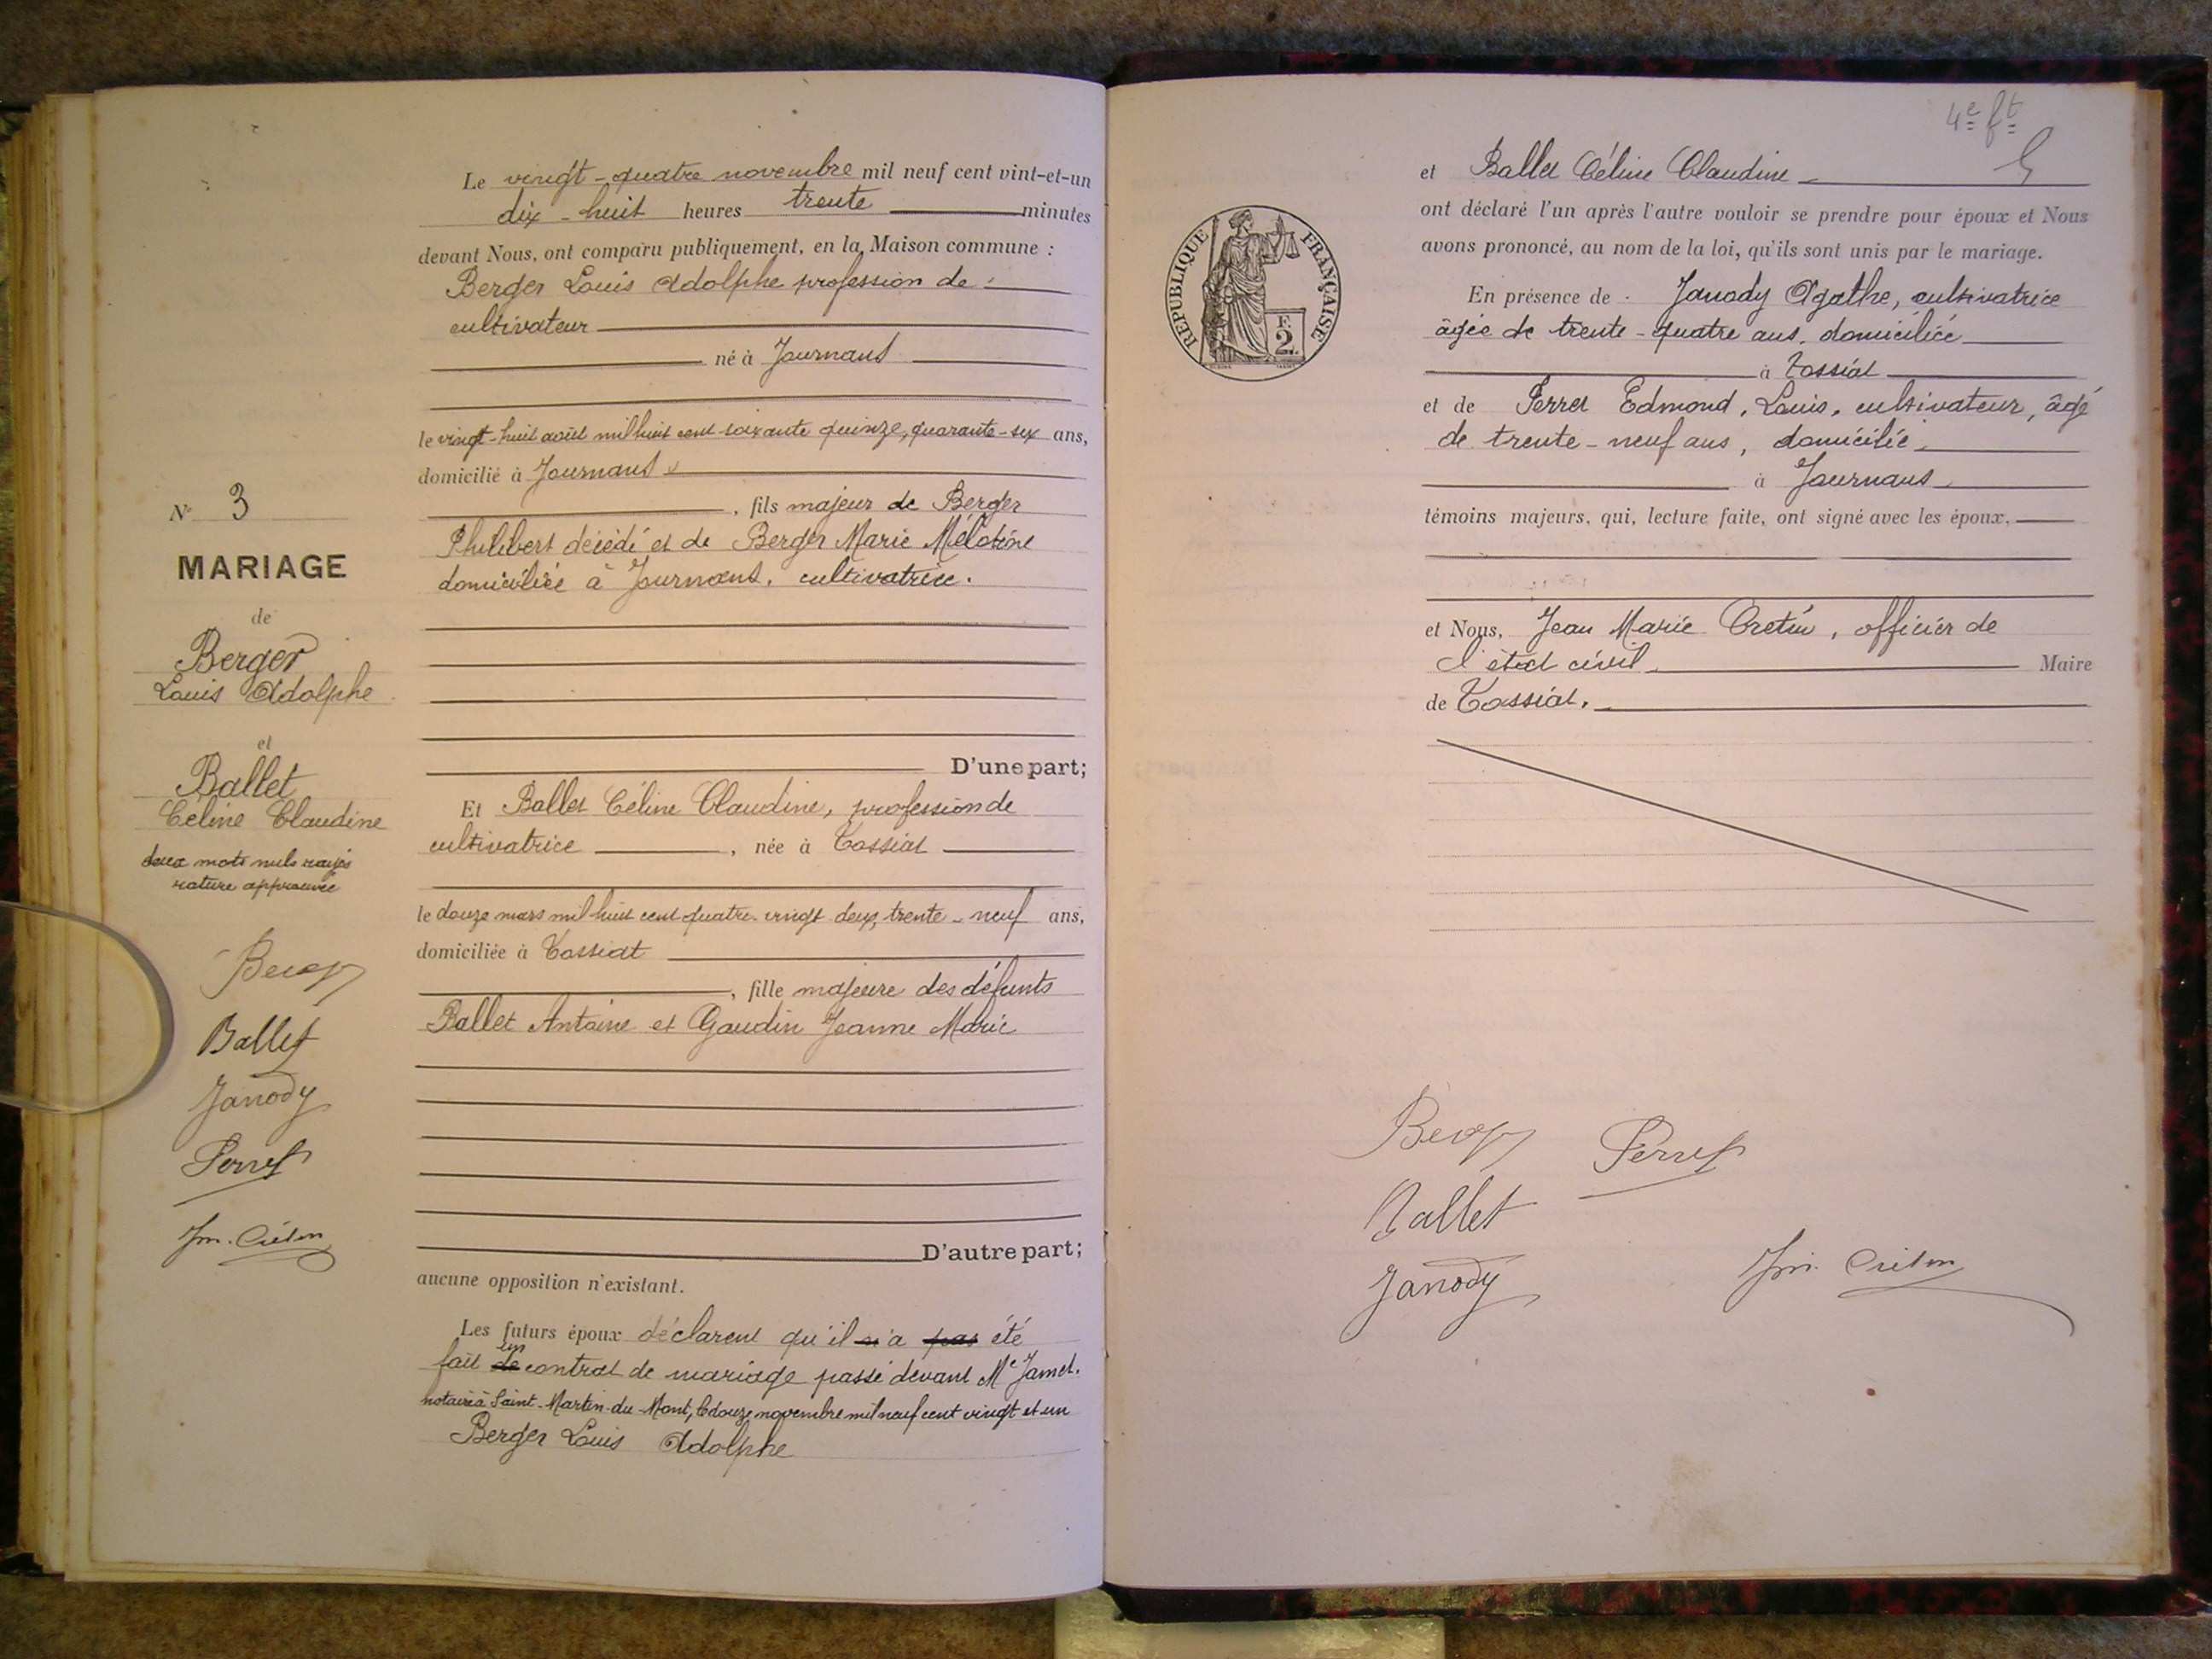 Le vingt-quatre novembre mil neuf cent vint-et-un
dix-huit heures trente minutes
devant Nous, ont comparu publiquement, en la Maison commune :
Berger Louis Adolphe profession de
cultivateur
né à Journans
le vingt-huit août mil huit cent soixante quinze, quarante-six ans,
domicilié à Journans
, fils majeur de Berger
Philibert décédé et de Berger Marie
domiciliée à Journans, cultivatrice.
N° 3
MARIAGE
de
Berger
Louis Adolphe
et
Ballet
Céline Claudine
deux mots nuls rayés
rature approuvée
Berger
Ballet
Janody
Perret
Jm. Crétin
D'une part;
Et Ballet Céline Claudine, profession de
cultivatrice, née à Tossiat
le douze mars mil huit cent quatre-vingt deux, trente-neuf ans,
domiciliée à Tossiat
, fille majeure des défunts
Ballet Antoine et Gaudin Jeanne Marie
D'autre part;
aucune opposition n'existant.
Les futurs époux déclarent qu'il n'a pas été
fait de un contrat de mariage passé devant Me Jamet.
notaire à Saint-Martin-du-Mont, le douze novembre mil neuf cent vingt et un
Berger Louis Adolphe
4e ft
et Ballet Céline Claudine
ont déclaré l'un après l'autre vouloir se prendre pour époux et Nous
avons prononcé, au nom de la loi, qu'ils sont unis par le mariage.
RÉPUBLIQUE FRANÇAISE
F.
2
En présence de Janody Agathe, cultivatrice
âgée de trente-quatre ans, domiciliée
à Tossiat
et de Perret Edmond, Louis, cultivateur, âgé
de trente-neuf ans, domicilié
à Journans
témoins majeurs, qui, lecture faite, ont signé avec les époux.
et Nous, Jean Marie Cretin, officier de
l'état civil Maire
de Tossiat.
Berger
Perret
Ballet
Janody
Jm. Crétin